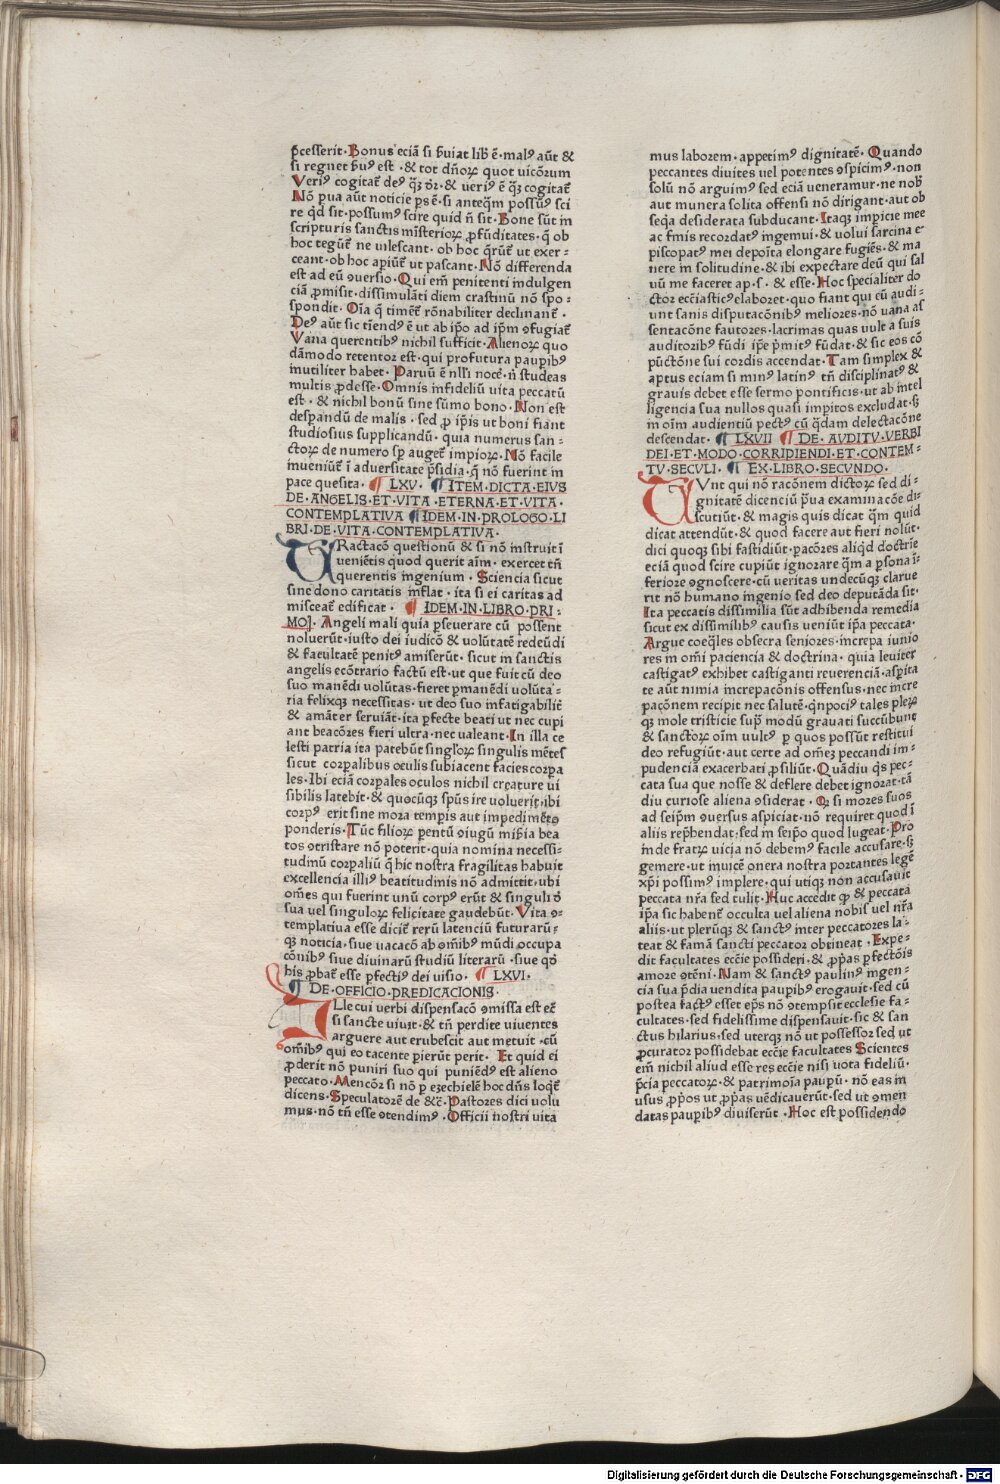 p̄cesserit· Bonus eciā si ẜuiat lib̄ ē· malꝰ aūt &
si regnet ẜuꝰ est · & tot dn̄oꝝ quot uicōrum
Veriꝰ cogitat̄ deꝰ q̄ꝫ dr̄· & ueriꝰ ē q̄ꝫ cogitat̄
Nō pua aūt noticie ps ē· si anteq̄m possūꝰ sci
re qd̄ sit· possumꝰ scire quid n̄ sit· Bone sūt in
scripturis sanctis misterioꝝ ꝓfūditates· q̄ ob
hoc tegūt̄ ne uilescant· ob hoc q̄rūt̄ ut exer-
ceant· ob hoc apiūt̄ ut pascant· Nō differenda
est ad eū ꝯuersio· Qui em̄ penitenti indulgen
ciā ꝓmisit· dissimulāti diem crastinū nō spo-
spondit· Oīa q̄ timēt̄ rōnabiliter declinant̄·
Deꝰ aūt sic tiēndꝰ ē ut ab ip̄o ad ip̄m ꝯfugiat̄
Vana querentibꝰ nichil sufficit· Alienoꝝ quo
dāmodo retentor est· qui profutura paupibꝰ
inutiliter habet· Paruū ē nll'i nocē· n̄ studeas
multis ꝓdesse· Omnis infideliū uita peccatū
est· & nichil bonū sine sūmo bono· Non est
despandū de malis· sed ꝓ ip̄is ut boni fiant
studiosius supplicandū· quia numerus san-
ctoꝝ de numero sp̄ auget̄ impioꝝ· Nō facile
inueniūt̄ ī aduersitate p̄sidia· q̄ nō fuerint in
pace quesita· ¶ LXV· ¶ ITEM·DICTA·EIVS
DE·ANGELIS·ET·VITA·ETERNA·ET·VITA·
CONTEMPLATIVA ¶ IDEM·IN·PROLOGO·LI
BRI·DE·VITA·CONTEMPLATIVA·
TRactacō questionū & si nō instruit ī
ueniētis quod querit aīm· exercet tn̄
querentis ingenium· Sciencia sicut
sine dono caritatis inflat· ita si ei caritas ad
misceat̄ edificat· ¶ IDEM·IN·LIBRO·PRI-
MO· Angeli mali quia pseuerare cū possent
noluerūt· iusto dei iudicō & uolūtatē redeūdi
& facultatē penitꝰ amiserūt· sicut in sanctis
angelis ecōtrario factū est· ut que fuit cū deo
suo manēdi uolūtas· fieret pmanēdi uolūta-
ria felixqꝫ necessitas· ut deo suo infatigabilit̄
& amāter seruiāt· ita pfecte beati ut nec cupi
ant beacōres fieri ultra· nec ualeant· In illa ce
lesti patria ita patebūt singl'oꝝ singulis mētes
sicut corpalibus oculis subiacent facies corpa
les· Ibi eciā corpales oculos nichil creature ui
sibilis latebit· & quocūqꝫ spūs ire uoluerit· ibi
corpꝰ erit sine mora tempis aut impedimēto
ponderis· Tūc filioꝝ pentū ꝯiugū mīs̄ia bea
tos ꝯtristare nō poterit· quia nomina necessi-
tudinū corpaliū q̄ hic nostra fragilitas habuit
excellencia illiꝰ beatitudinis nō admittit· ubi
om̄es qui fuerint unū corpꝰ erūt & singuli d̄
sua uel singuloꝝ felicitate gaudebūt· Vita ꝯ-
templatiua esse dicit̄ rerū latenciū futurarū-
qꝫ noticia· siue uacacō ab om̄ibꝰ mūdi occupa
cōnibꝰ siue diuinarū studiū literarū· siue qd̄
his ꝓbat̄ esse pfectiꝰ dei uisio· ¶ LXVI·
¶ DE·OFFICIO·PREDICACIONIS·
ILle cui uerbi dispensacō ꝯmissa est et̄
si sancte uiuit· & tn̄ perdite uiuentes
arguere aut erubescit aut metuit· cū
om̄ibꝰ qui eo tacente pierūt perit· Et quid ei
ꝓderit nō puniri suo qui puniēdꝰ est alieno
peccato· Mencōr si nō p ezechielē hoc dn̄s loqt̄
dicens· Speculatorē de &c̄· Pastores dici uolu
mus· nō tn̄ esse ꝯtendimꝰ· Officii nostri uita
mus laborem· appetimꝰ dignitatē· Quando
peccantes diuites uel potentes ꝯspicimꝰ· non
solū nō arguimꝰ sed eciā ueneramur· ne nob̄
aut munera solita offensi nō dirigant· aut ob
seq̄a desiderata subducant· Itaqꝫ impicie mee
ac īfirmis recordatꝰ ingemui· & uolui sarcina e-
piscopatꝰ mei depoīta elongare fugiēs· & ma
nere in solitudine· & ibi expectare deū qui sal
uū me faceret a p·s· & esse· Hoc specialiter do
ctor ecc̄iasticꝰ elaboret· quo fiant qui eū audi-
unt sanis disputacōnibꝰ meliores· nō uana as
sentacōne fautores· lacrimas quas uult a suis
auditoribꝰ fūdi ip̄e p̄mitꝰ fūdat· & sic eos cō
pūctōne sui cordis accendat· Tam simplex &
aptus eciam si minꝰ latinꝰ tn̄ disciplinatꝰ &
grauis debet esse sermo pontificis· ut ab intel
ligencia sua nullos quasi impitos excludat· ẜꝫ
in oīm audientiū pectꝰ cū q̄dam delectacōne
descendat· ¶ LXVII ¶ DE·AVDITV·VERBI
DEI·ET·MODO·CORRIPIENDI·ET·CONTEM-
TV·SECVLI· ¶ EX·LIBRO·SECVNDO·
SVnt qui nō racōnem dictoꝝ sed di-
gnitatē dicenciū p̄ua examinacōe di-
scutiūt· & magis quis dicat q̄m quid
dicat attendūt· & quod facere aut fieri nolūt·
dici quoqꝫ sibi fastidiūt· pacōres aliqd̄ doctrīe
eciā quod scire cupiūt ignorare q̄m a psona ī-
feriore ꝯgnoscere· cū ueritas undecūqꝫ clarue
rit nō humano ingenio sed deo deputāda sit·
Ita peccatis dissimilia sūt adhibenda remedia
sicut ex dissimilibꝰ causis ueniūt ip̄a peccata·
Argue coeq̄les obsecra seniores· increpa iunio
res in om̄i paciencia & doctrina· quia leuiter
castigatꝰ exhibet castiganti reuerenciā· aspita
te aūt nimia increpacōnis offensus· nec incre
pacōnem recipit nec salutē· qn̄pociꝰ tales pleꝝ
qꝫ mole tristicie sup̄ modū grauati succūbunt
& sanctoꝝ oīm uultꝰ p quos possūt restitui
deo refugiūt· aut certe ad om̄eꝫ peccandi im-
pudenciā exacerbati ꝓsiliūt· Quādiu q̄s pec-
cata sua que nosse & deflere debet ignorat· tā
diu curiose aliena ꝯsiderat· Qr̄ si mores suos
ad seip̄m ꝯuersus aspiciat· nō requiret quod ī
aliis rep̄hendat· sed in seip̄o quod lugeat· Pro
inde fratꝝ uicia nō debemꝰ facile accusare· ẜꝫ
gemere· ut inuicē onera nostra portantes legē
xp̄i possimꝰ implere· qui utiqꝫ non accusauit
peccata nr̄a sed tulit· Huc accedit qꝙ & peccata
ip̄a sic habent̄ occulta uel aliena nobis uel nr̄a
aliis· ut plerūqꝫ & sanctꝰ inter peccatores la-
teat & famā sancti peccator obtineat· Expe-
dit facultates ecc̄ie possideri· & ꝓp̄as pfectōis
amore ꝯtēni· Nam & sanctꝰ paulinꝰ ingen-
cia sua p̄dia uendita paupibꝰ erogauit· sed cū
postea factꝰ esset ep̄s nō ꝯtempsit ecclesie fa-
cultates· sed fidelissime dispensauit· sic & san
ctus hilarius· sed uterqꝫ nō ut possessor sed ut
ꝓcurator possidebat ecc̄ie facultates Scientes
em̄ nichil aliud esse res ecc̄ie nisi uota fideliū·
p̄cia peccatoꝝ· & patrimoīa paupū· nō eas in
usus ꝓp̄os ut ꝓp̄as uēdicauerūt· sed ut ꝯmen
datas paupibꝰ diuiserūt· Hoc est possidendo
Digitalisierung gefördert durch die Deutsche Forschungsgemeinschaft - DFG